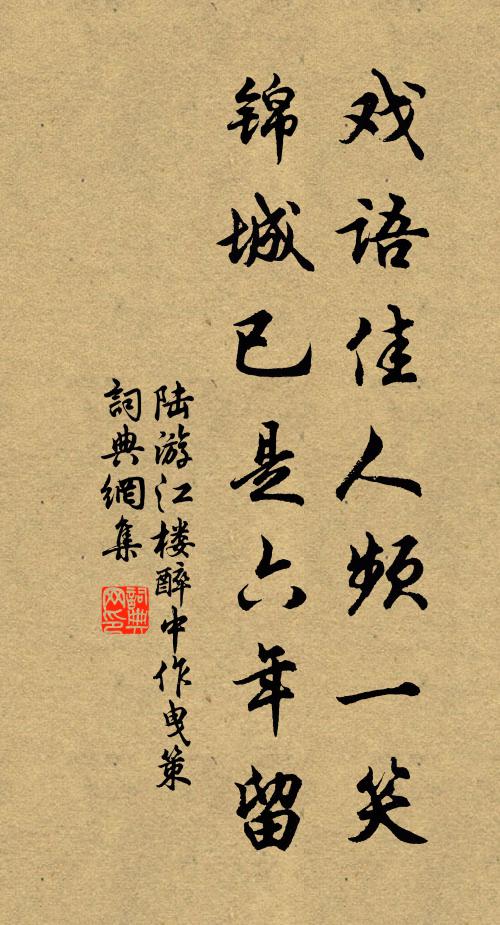 戏语佳人频一笑
锦城已是六年留
陆游江楼醉中作曳策
詞典網集
詞典网印